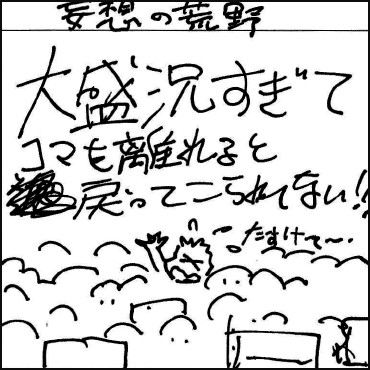 妄想の荒野
大盛況すぎて
コマを離れると
戻ってこられてない!!
たすけて〜.